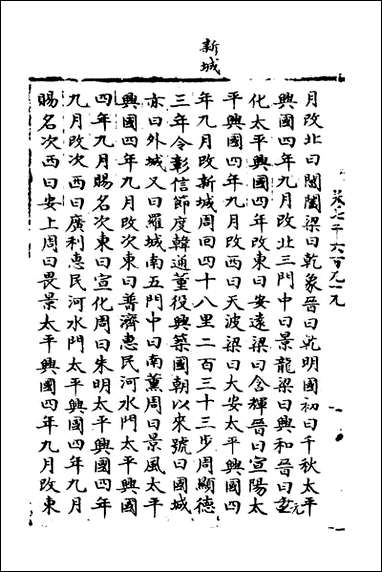 新城
月改北曰閶闔梁曰乾象晉曰乾明國初曰千秋太平
興國四年九月改北三門中曰景龍梁曰興和晉曰玄
化太平興國四年改東曰安遠梁曰含輝晉曰宣陽太
平興國四年九月改西曰天波梁曰大安太平興國四
年九月改新城周回四十八里二百三十三步周顯德
三年令彰信節度韓通董役興築國朝以來號曰國城
亦曰外城又曰羅城南五門中曰南薰周曰景風太平
興國四年九月改次東曰普濟惠民河水門太平興國
四年九月賜名次東曰宣化周曰朱明太平興國四年
九月改次西曰廣利惠民河水門太平興國四年九月
賜名次西曰安上周曰畏景太平興國四年九月改東